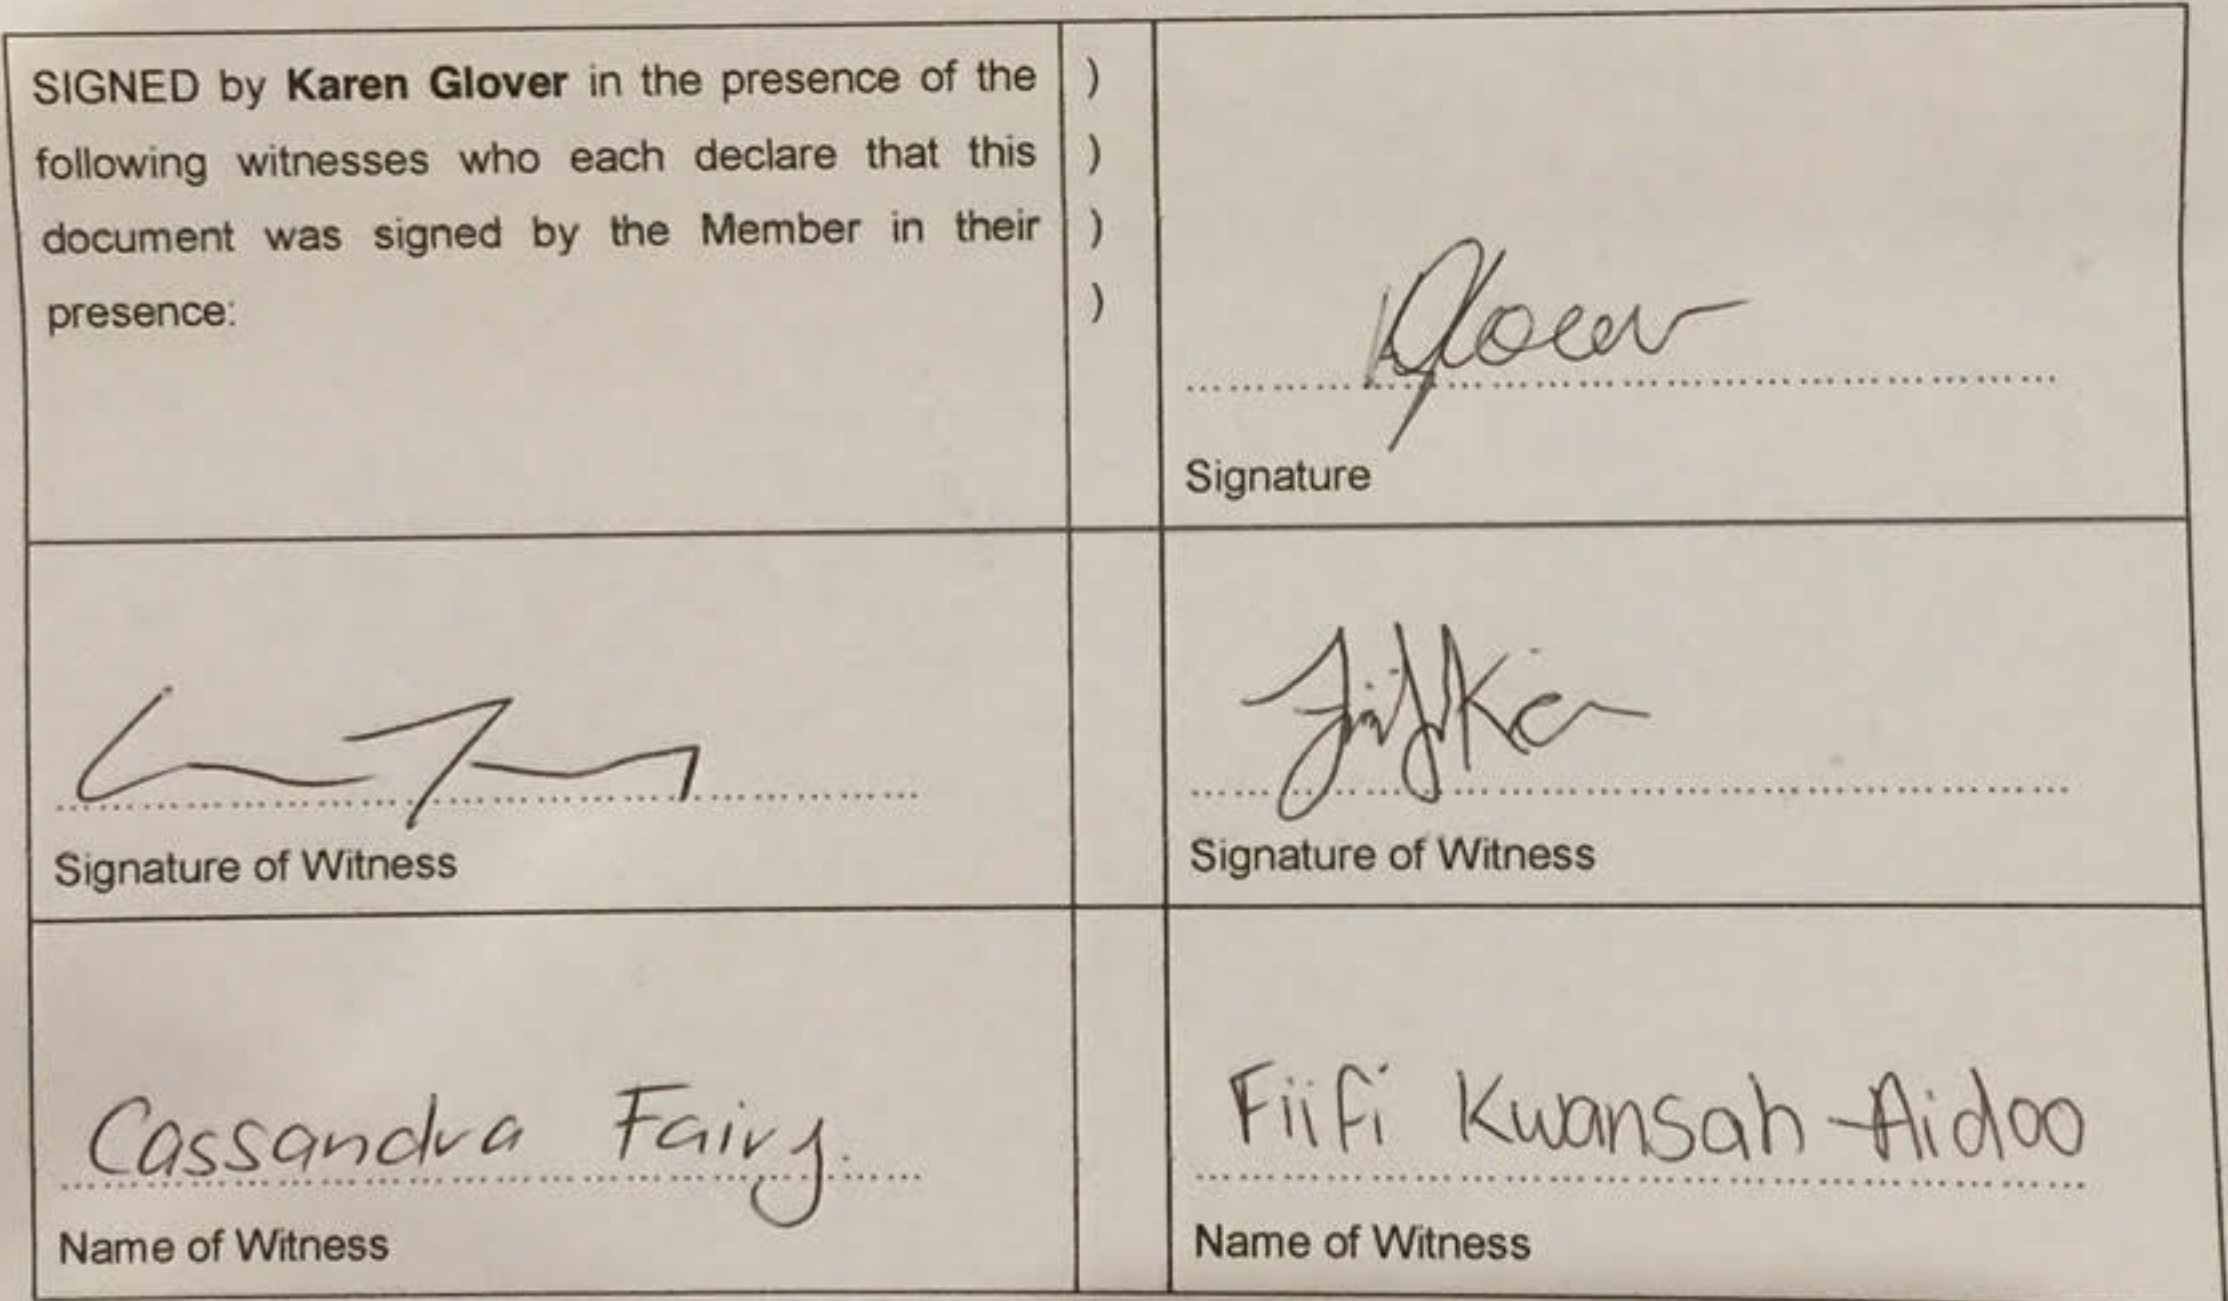 SIGNED by Karen Glover in the presence of the )
following witnesses who each declare that this )
document was signed by the Member in their )
presence: )
Signature
Signature of Witness
Signature of Witness
Cassandra Fairy.
Fiifi Kwansah-Aidoo
Name of Witness
Name of Witness